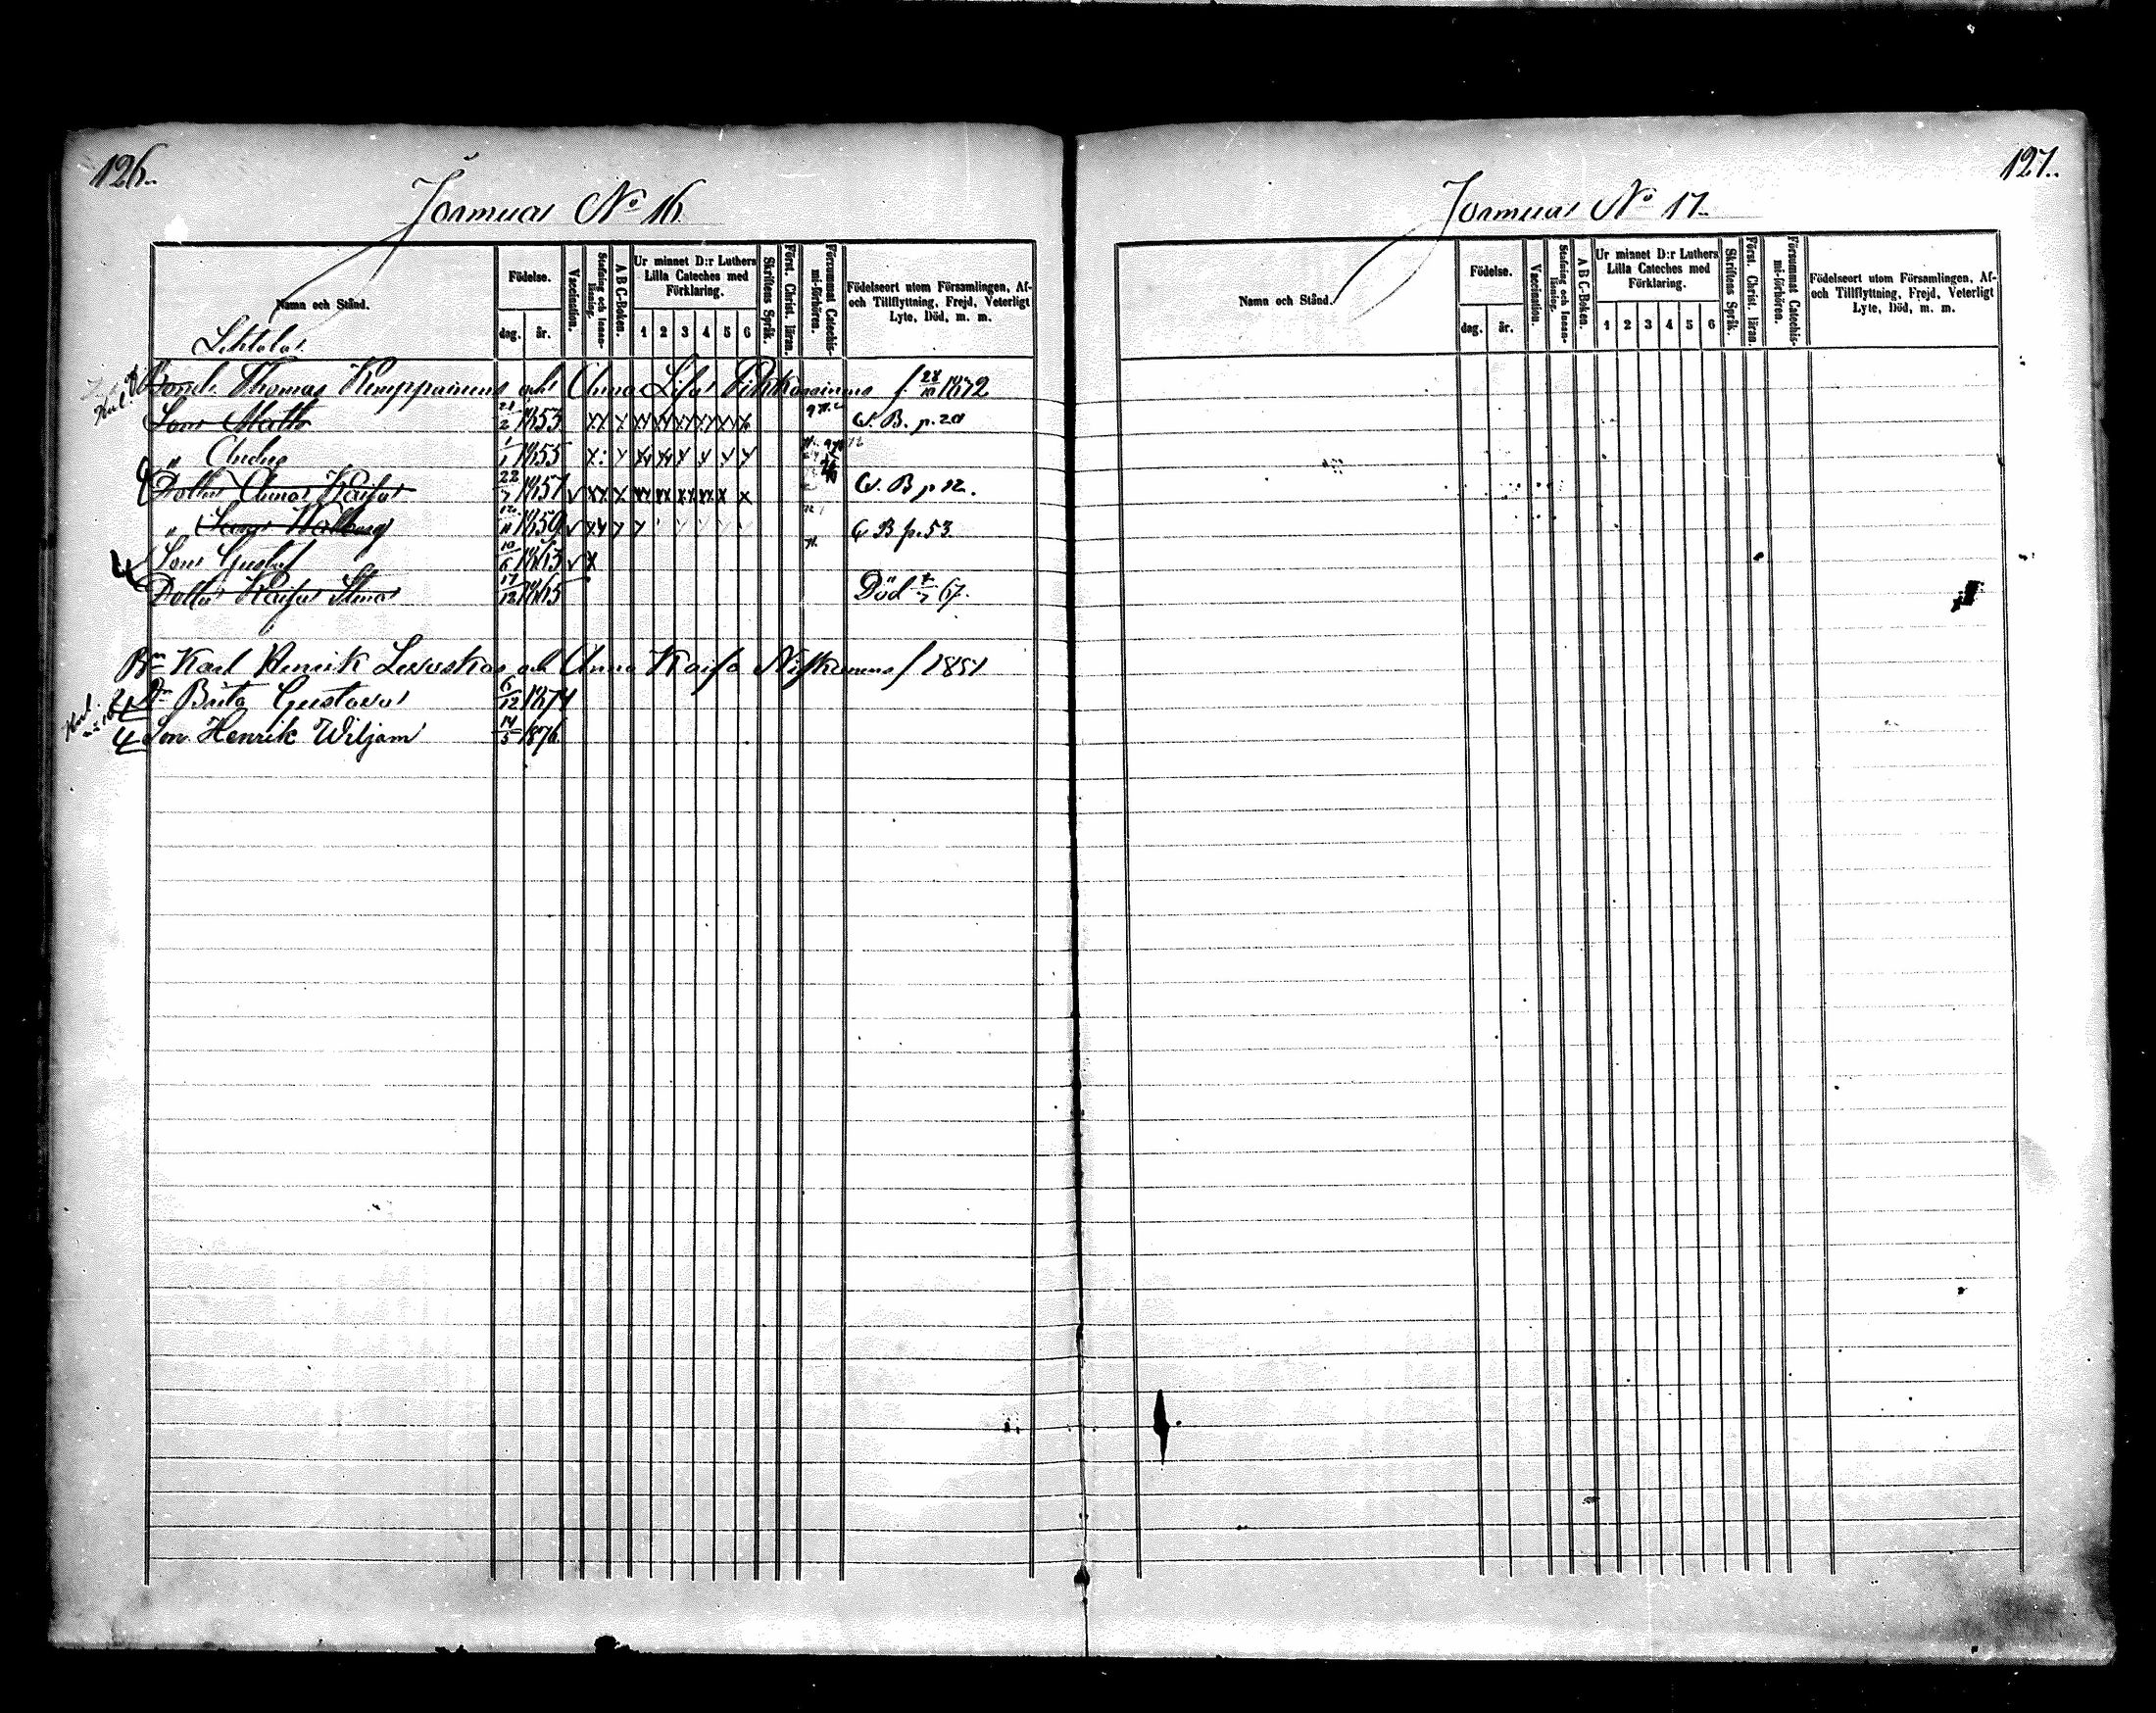 126.
Jormua No 16.
Namn och Stånd.
Födelse.
dag. år.
Vaccination.
Stafning och Innan-läsning.
A B C-Boken.
Ur minnet D:r Luthers Lilla Cateches med Förklaring.
1 2 3 4 5 6
Skriftens Språk.
Först. Christ. läran.
Försummat Catechis-mi-förhören.
Födelseort utom Församlingen, Af- och Tillflyttning, Frejd, Veterligt Lyte, Död, m. m.
Lehtola
Bond. Thomas Kemppainens och Anna Lisa Pikkarainens f. 28/10 1872
Son Matts 21/2 1853 C. B. p. 20
" Anders 1/1 1855
Dotter Anna Kaisa 22/7 1857 C. B. p 12.
" 12/11 1859 C B p. 53.
Son Gustaf 10/6 1863
Dotter Kaisa Stina 17/12 1865 Död 67.
Bn Karl Henrik Leiviskas och Anna Kaisa Niskanens f 1851
Dr Brita Gustava 6/12 1874
Son Henrik Wiljam 14/5 1876
127.
Jormua No 17.
Namn och Stånd.
Födelse.
dag. år.
Vaccination.
Stafning och Innan-läsning.
A B C-Boken.
Ur minnet D:r Luthers Lilla Cateches med Förklaring.
1 2 3 4 5 6
Skriftens Språk.
Först. Christ. läran.
Försummat Catechis-mi-förhören.
Födelseort utom Församlingen, Af- och Tillflyttning, Frejd, Veterligt Lyte, Död, m. m.